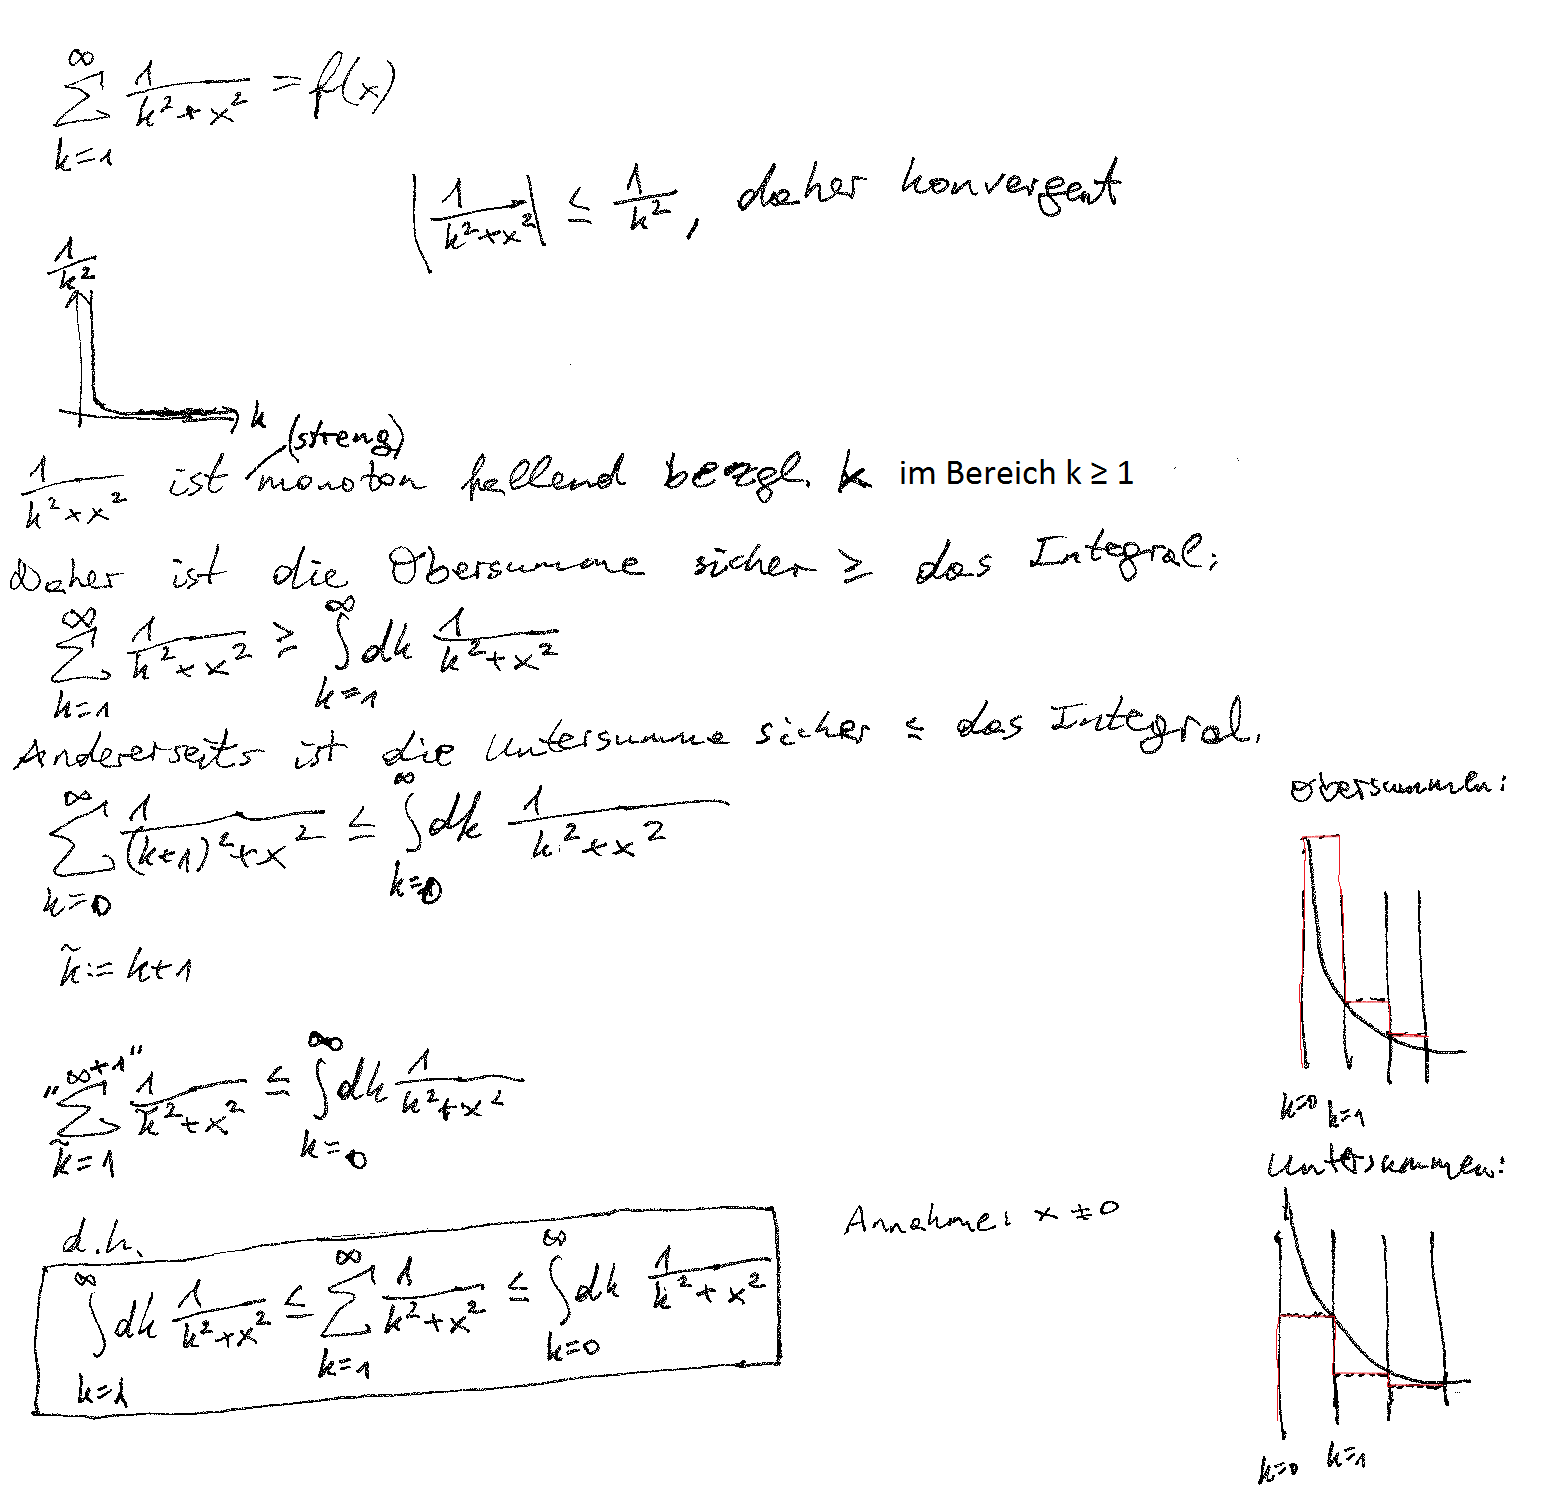 ∞
∑ 1/(k²+x²) = f(x)
k=1
|1/(k²+x²)| ≤ 1/k², daher konvergent
1/k²
k
(streng)
1/(k²+x²) ist monoton fallend bezgl. k im Bereich k ≥ 1
Daher ist die Obersumme sicher ≥ das Integral:
∞ ∞
∑ 1/(k²+x²) ≥ ∫dk 1/(k²+x²)
k=1 k=1
Andererseits ist die Untersumme sicher ≤ das Integral.
∞ ∞
∑ 1/((k+1)²+x²) ≤ ∫dk 1/(k²+x²)
k=0 k=0
k̃:= k+1
"∞+1" ∞
∑ 1/(k̃²+x²) ≤ ∫dk 1/(k²+x²)
k̃=1 k=0
d.h.
∞ ∞ ∞
∫dk 1/(k²+x²) ≤ ∑ 1/(k²+x²) ≤ ∫dk 1/(k²+x²)
k=1 k=1 k=0
Annahme: x ≠ 0
Obersummen:
k=0 k=1
Untersummen:
k=0 k=1